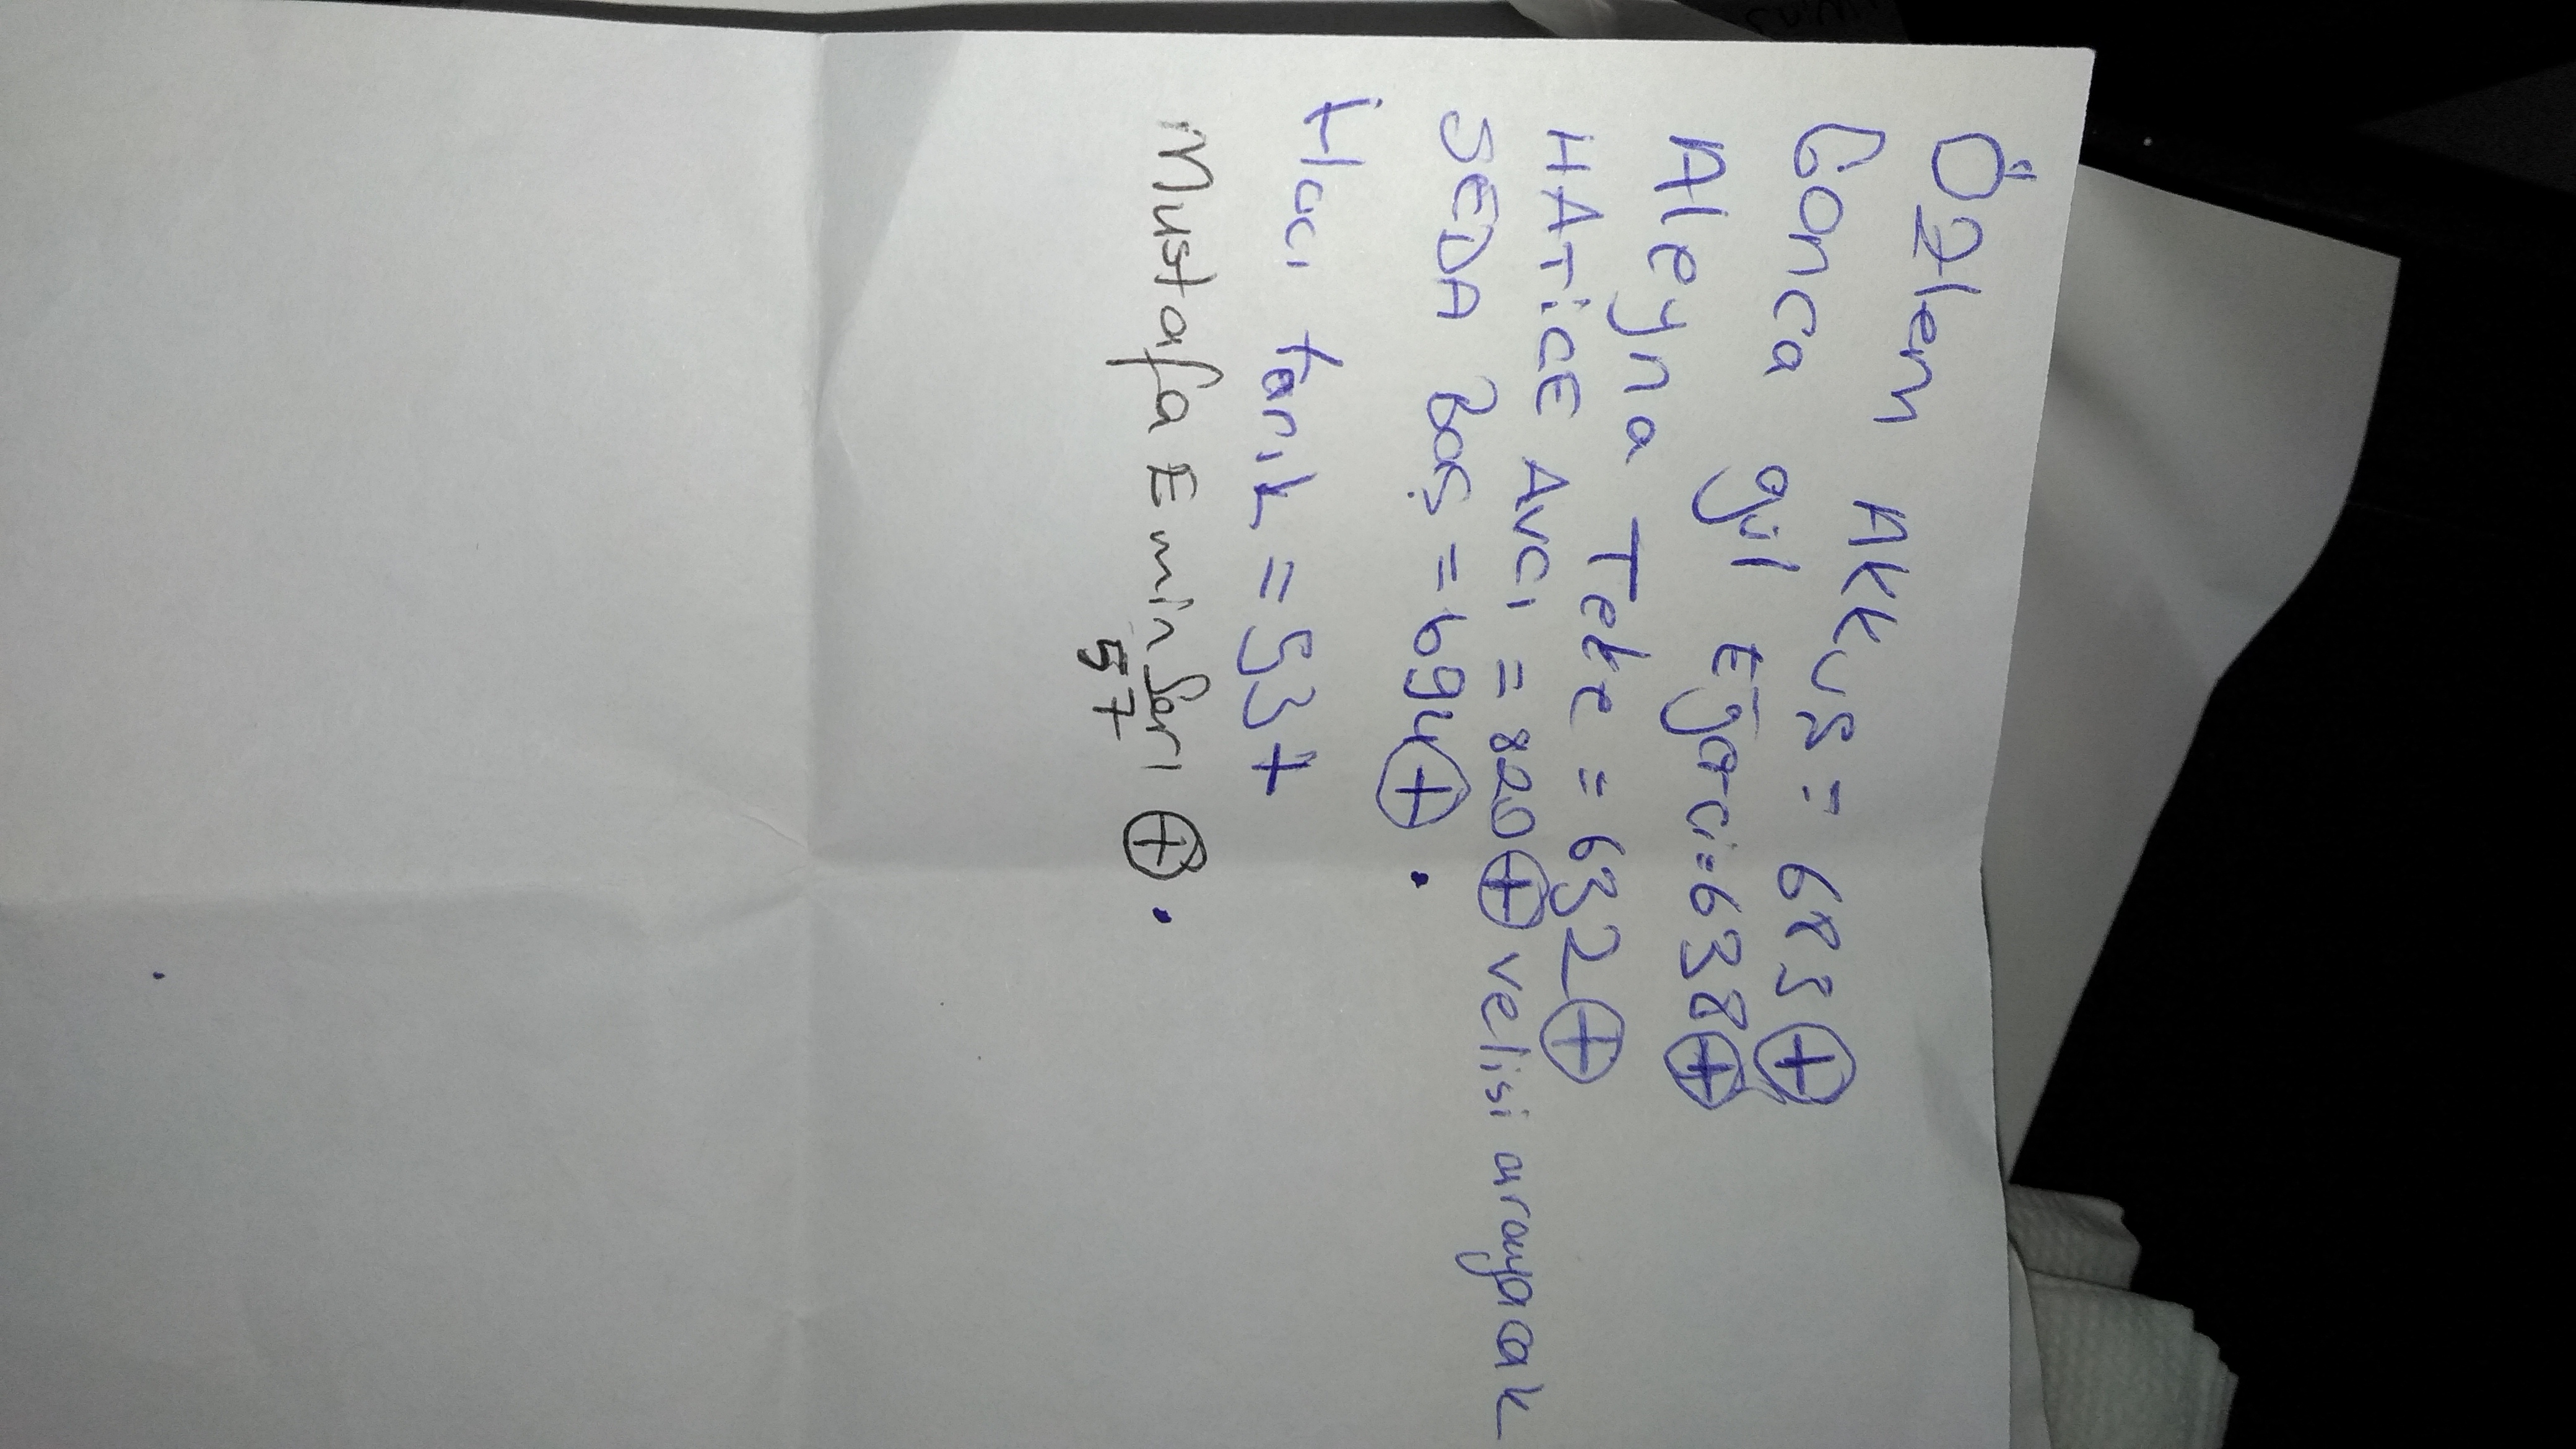 Özlem Akkuş = 685 ⊕
Gonca gül Eğerci = 638 ⊕
Aleyna Teke = 632 ⊕
HATiCE AVCI = 820 ⊕ velisi arayacak
SEDA Baş = 694 ⊕ .
Hacı tarık = 53 +
Mustafa Emin Sarı ⊕ .
57